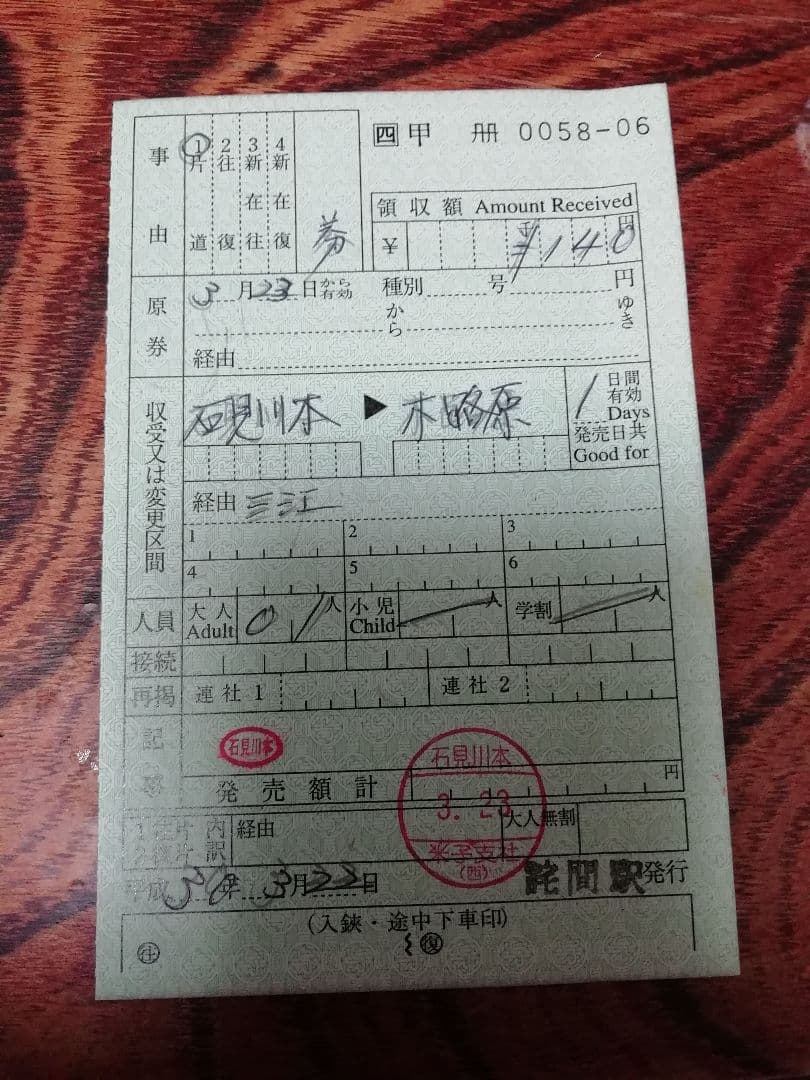 四 甲 册 0058-06
事由
1 片道
2 往復
3 新在往
4 新在復
領収額 Amount Received
¥ 140 円
原券
3月23日から有効 種別 号 円
から ゆき
経由
収受又は変更区間
石見川本 ▶ 木路原
1 日間有効 Days
発売日共 Good for
経由 三江
1 2 3
4 5 6
人員 大人 Adult 01人 小児 Child 人 学割 人
接続
再掲 連社 1 連社 2
記事
石見川本
発売額計 円
石見川本
3.23
米子支社
(西)
内訳 経由 大人無割
平成30年3月22日 詫間駅発行
(入鋏・途中下車印)
注 復